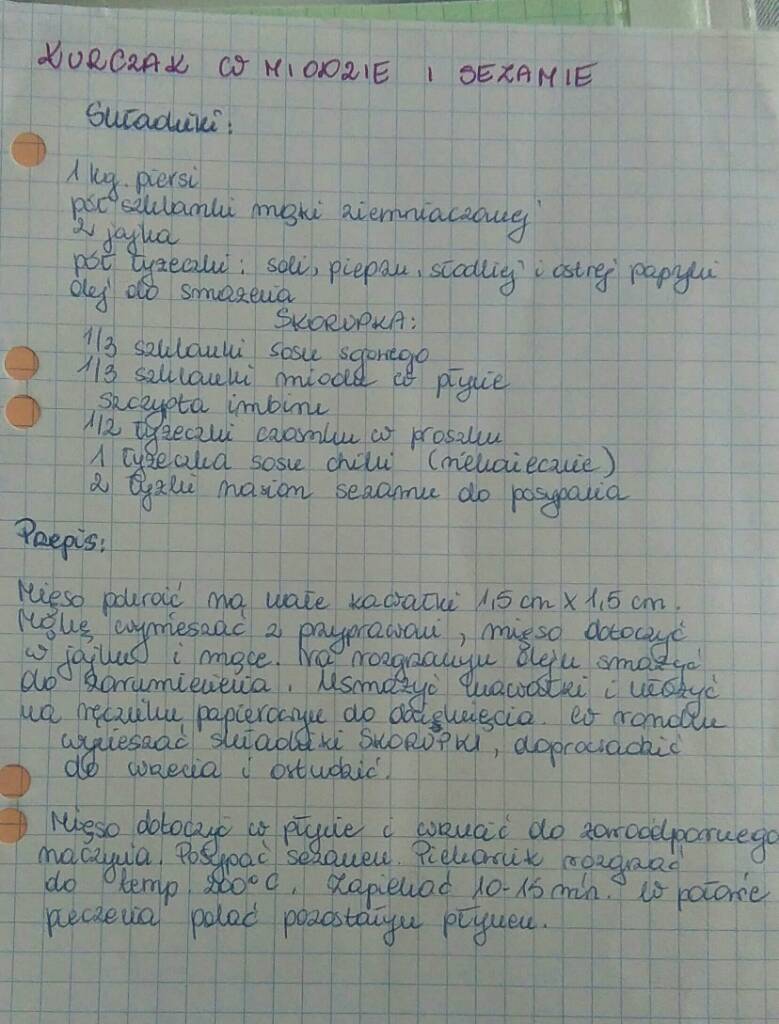 KURCZAK W MIODZIE I SEZAMIE
Składniki:
1 kg. piersi
pół szklanki mąki ziemniaczanej
2 jajka
pół łyżeczki: soli, pieprzu, słodkiej i ostrej papryki
olej do smażenia
SKORUPKA:
1/3 szklanki sosu sojonego
1/3 szklanki miodu w płynie
szczypta imbiru
1/2 łyżeczki czosnku w proszku
1 łyżeczka sosu chilli (niekoniecznie)
2 łyżki nasion sezamu do posypania
Przepis:
Mięso pokroić na małe kawałki 1,5 cm x 1,5 cm.
Mąkę wymieszać z przyprawami, mięso obtoczyć
w jajku i mące. Na rozgrzanym oleju smażyć
do zarumienienia. Usmażyć kawałki i ułożyć
na ręczniku papierowym do odciśnięcia. W rondlu
wymieszać składniki SKORUPKI, doprowadzić
do wrzenia i ostudzić.
Mięso obtoczyć w płynie i wrzucać do żaroodpornego
naczynia. Posypać sezamem. Piekarnik rozgrzać
do temp. 200°C. Zapiekać 10-15 min. W połowie
pieczenia polać pozostałym płynem.